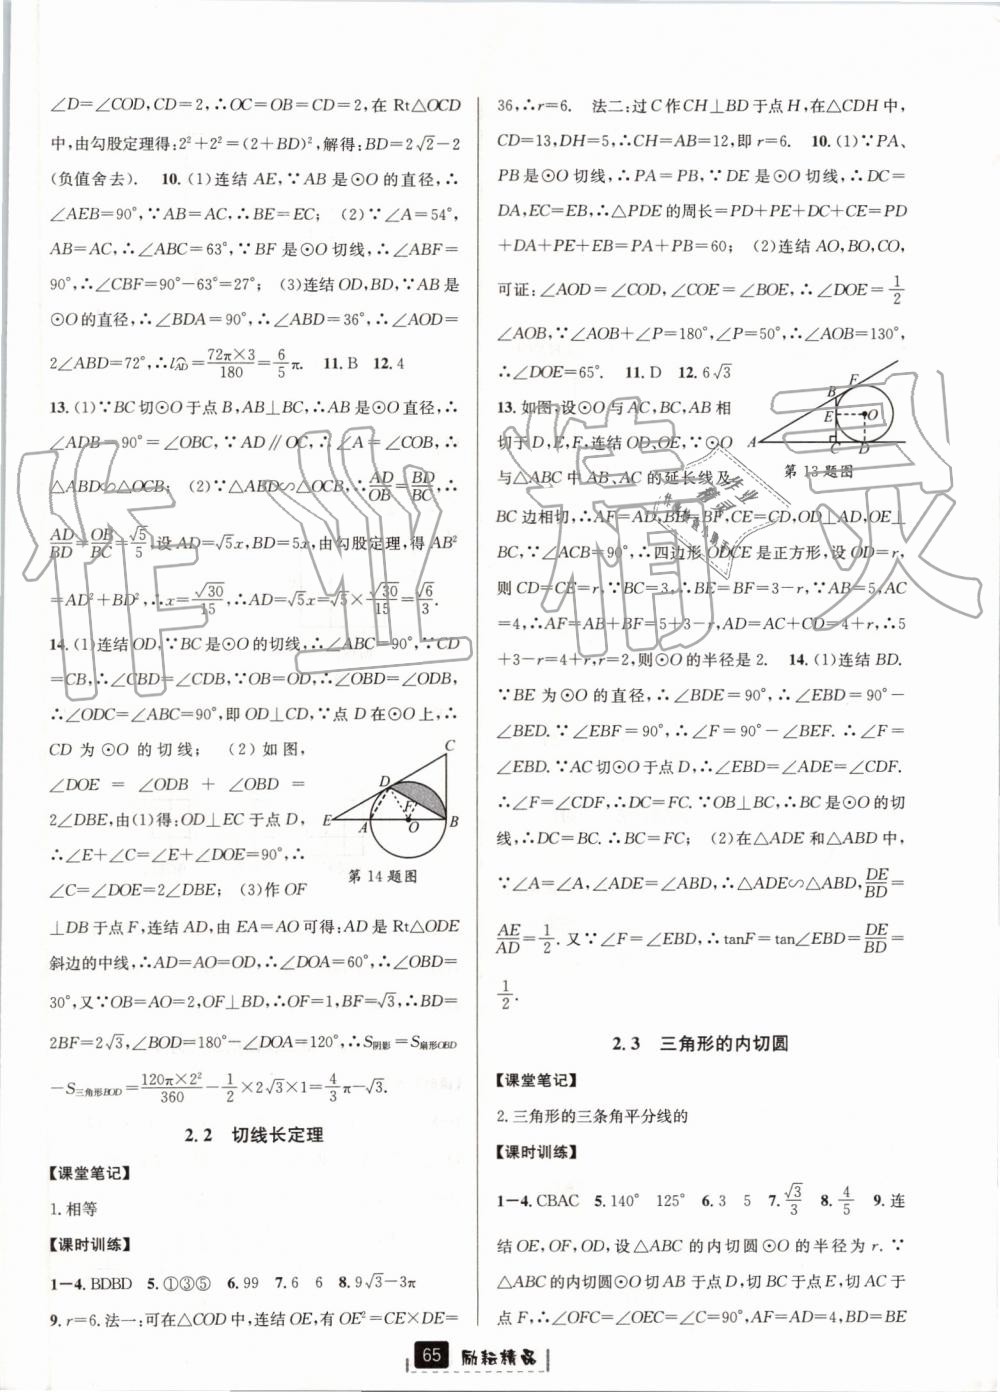 ∠D=∠COD,CD=2,∴OC=OB=CD=2,在 Rt△OCD
中,由勾股定理得:2²+2²=(2+BD)²,解得:BD=2√2-2
(负值舍去). 10.(1)连结 AE,∵AB 是⊙O 的直径,∴
∠AEB=90°,∵AB=AC,∴BE=EC; (2)∵∠A=54°,
AB=AC,∴∠ABC=63°,∵BF 是⊙O 切线,∴∠ABF=
90°,∴∠CBF=90°-63°=27°; (3)连结 OD,BD,∵AB 是
⊙O 的直径,∴∠BDA=90°,∴∠ABD=36°,∴∠AOD=
2∠ABD=72°,∴l⌒AD=72π×3/180=6/5π. 11.B 12.4
13.(1)∵BC 切⊙O 于点 B,AB⊥BC,∴AB 是⊙O 直径,∴
∠ADB=90°=∠OBC,∵AD∥OC,∴∠A=∠COB,∴
△ABD∽△OCB; (2)∵△ABD∽△OCB,∴AD/OB=BD/BC,∴
AD/BD=OB/BC=√5/5,设 AD=√5x,BD=5x,由勾股定理,得 AB²
=AD²+BD²,∴x=√30/15,∴AD=√5x=√5×√30/15=√6/3.
14.(1)连结 OD,∵BC 是⊙O 的切线,∴∠ABC=90°,∵CD
=CB,∴∠CBD=∠CDB,∵OB=OD,∴∠OBD=∠ODB,
∴∠ODC=∠ABC=90°,即 OD⊥CD,∵点 D 在⊙O 上,∴
CD 为⊙O 的切线; (2)如图,
∠DOE = ∠ODB + ∠OBD =
2∠DBE,由(1)得:OD⊥EC 于点 D,
∴∠E+∠C=∠E+∠DOE=90°,∴
∠C=∠DOE=2∠DBE; (3)作 OF
C
D
E
A
F
O
B
第 14 题图
⊥DB 于点 F,连结 AD,由 EA=AO 可得:AD 是 Rt△ODE
斜边的中线,∴AD=AO=OD,∴∠DOA=60°,∴∠OBD=
30°,又∵OB=AO=2,OF⊥BD,∴OF=1,BF=√3,∴BD=
2BF=2√3,∠BOD=180°-∠DOA=120°,∴S阴影=S扇形OBD
-S三角形BOD=120π×2²/360-1/2×2√3×1=4/3π-√3.
2.2 切线长定理
【课堂笔记】
1.相等
【课时训练】
1-4.BDBD 5.①③⑤ 6.99 7.6 6 8.9√3-3π
9.r=6. 法一:可在△COD 中,连结 OE,有 OE²=CE×DE=
36,∴r=6. 法二:过 C 作 CH⊥BD 于点 H,在△CDH 中,
CD=13,DH=5,∴CH=AB=12,即 r=6. 10.(1)∵PA、
PB 是⊙O 切线,∴PA=PB,∵DE 是⊙O 切线,∴DC=
DA,EC=EB,∴△PDE 的周长=PD+PE+DC+CE=PD
+DA+PE+EB=PA+PB=60; (2)连结 AO,BO,CO,
可证:∠AOD=∠COD,∠COE=∠BOE,∴∠DOE=1/2
∠AOB,∵∠AOB+∠P=180°,∠P=50°,∴∠AOB=130°,
∴∠DOE=65°. 11.D 12.6√3
13.如图,设⊙O 与 AC,BC,AB 相
切于 D,E,F,连结 OD、OE,∵⊙O
与△ABC 中 AB、AC 的延长线及
A
B
C
D
E
F
O
第 13 题图
BC 边相切,∴AF=AD,BE=BF,CE=CD,OD⊥AD,OE⊥
BC,∵∠ACB=90°,∴四边形 ODCE 是正方形,设 OD=r,
则 CD=CE=r,∵BC=3,∴BE=BF=3-r,∵AB=5,AC
=4,∴AF=AB+BF=5+3-r,AD=AC+CD=4+r,∴5
+3-r=4+r,r=2,则⊙O 的半径是 2. 14.(1)连结 BD.
∵BE 为⊙O 的直径,∴∠BDE=90°,∴∠EBD=90°-
∠BED. ∵∠EBF=90°,∴∠F=90°-∠BEF. ∴∠F=
∠EBD. ∵AC 切⊙O 于点 D,∴∠EBD=∠ADE=∠CDF.
∴∠F=∠CDF,∴DC=FC. ∵OB⊥BC,∴BC 是⊙O 的切
线,∴DC=BC. ∴BC=FC; (2)在△ADE 和△ABD 中,
∵∠A=∠A,∠ADE=∠ABD,∴△ADE∽△ABD,DE/BD=
AE/AD=1/2. 又∵∠F=∠EBD,∴tanF=tan∠EBD=DE/BD=
1/2.
2.3 三角形的内切圆
【课堂笔记】
2.三角形的三条角平分线的
【课时训练】
1-4.CBAC 5.140° 125° 6.3 5 7.√3/3 8.4/5 9.连
结 OE,OF,OD,设△ABC 的内切圆⊙O 的半径为 r. ∵
△ABC 的内切圆⊙O 切 AB 于点 D,切 BC 于点 E,切 AC 于
点 F,∴∠OFC=∠OEC=∠C=90°,AF=AD=4,BD=BE
65 励耘精品
作业精灵